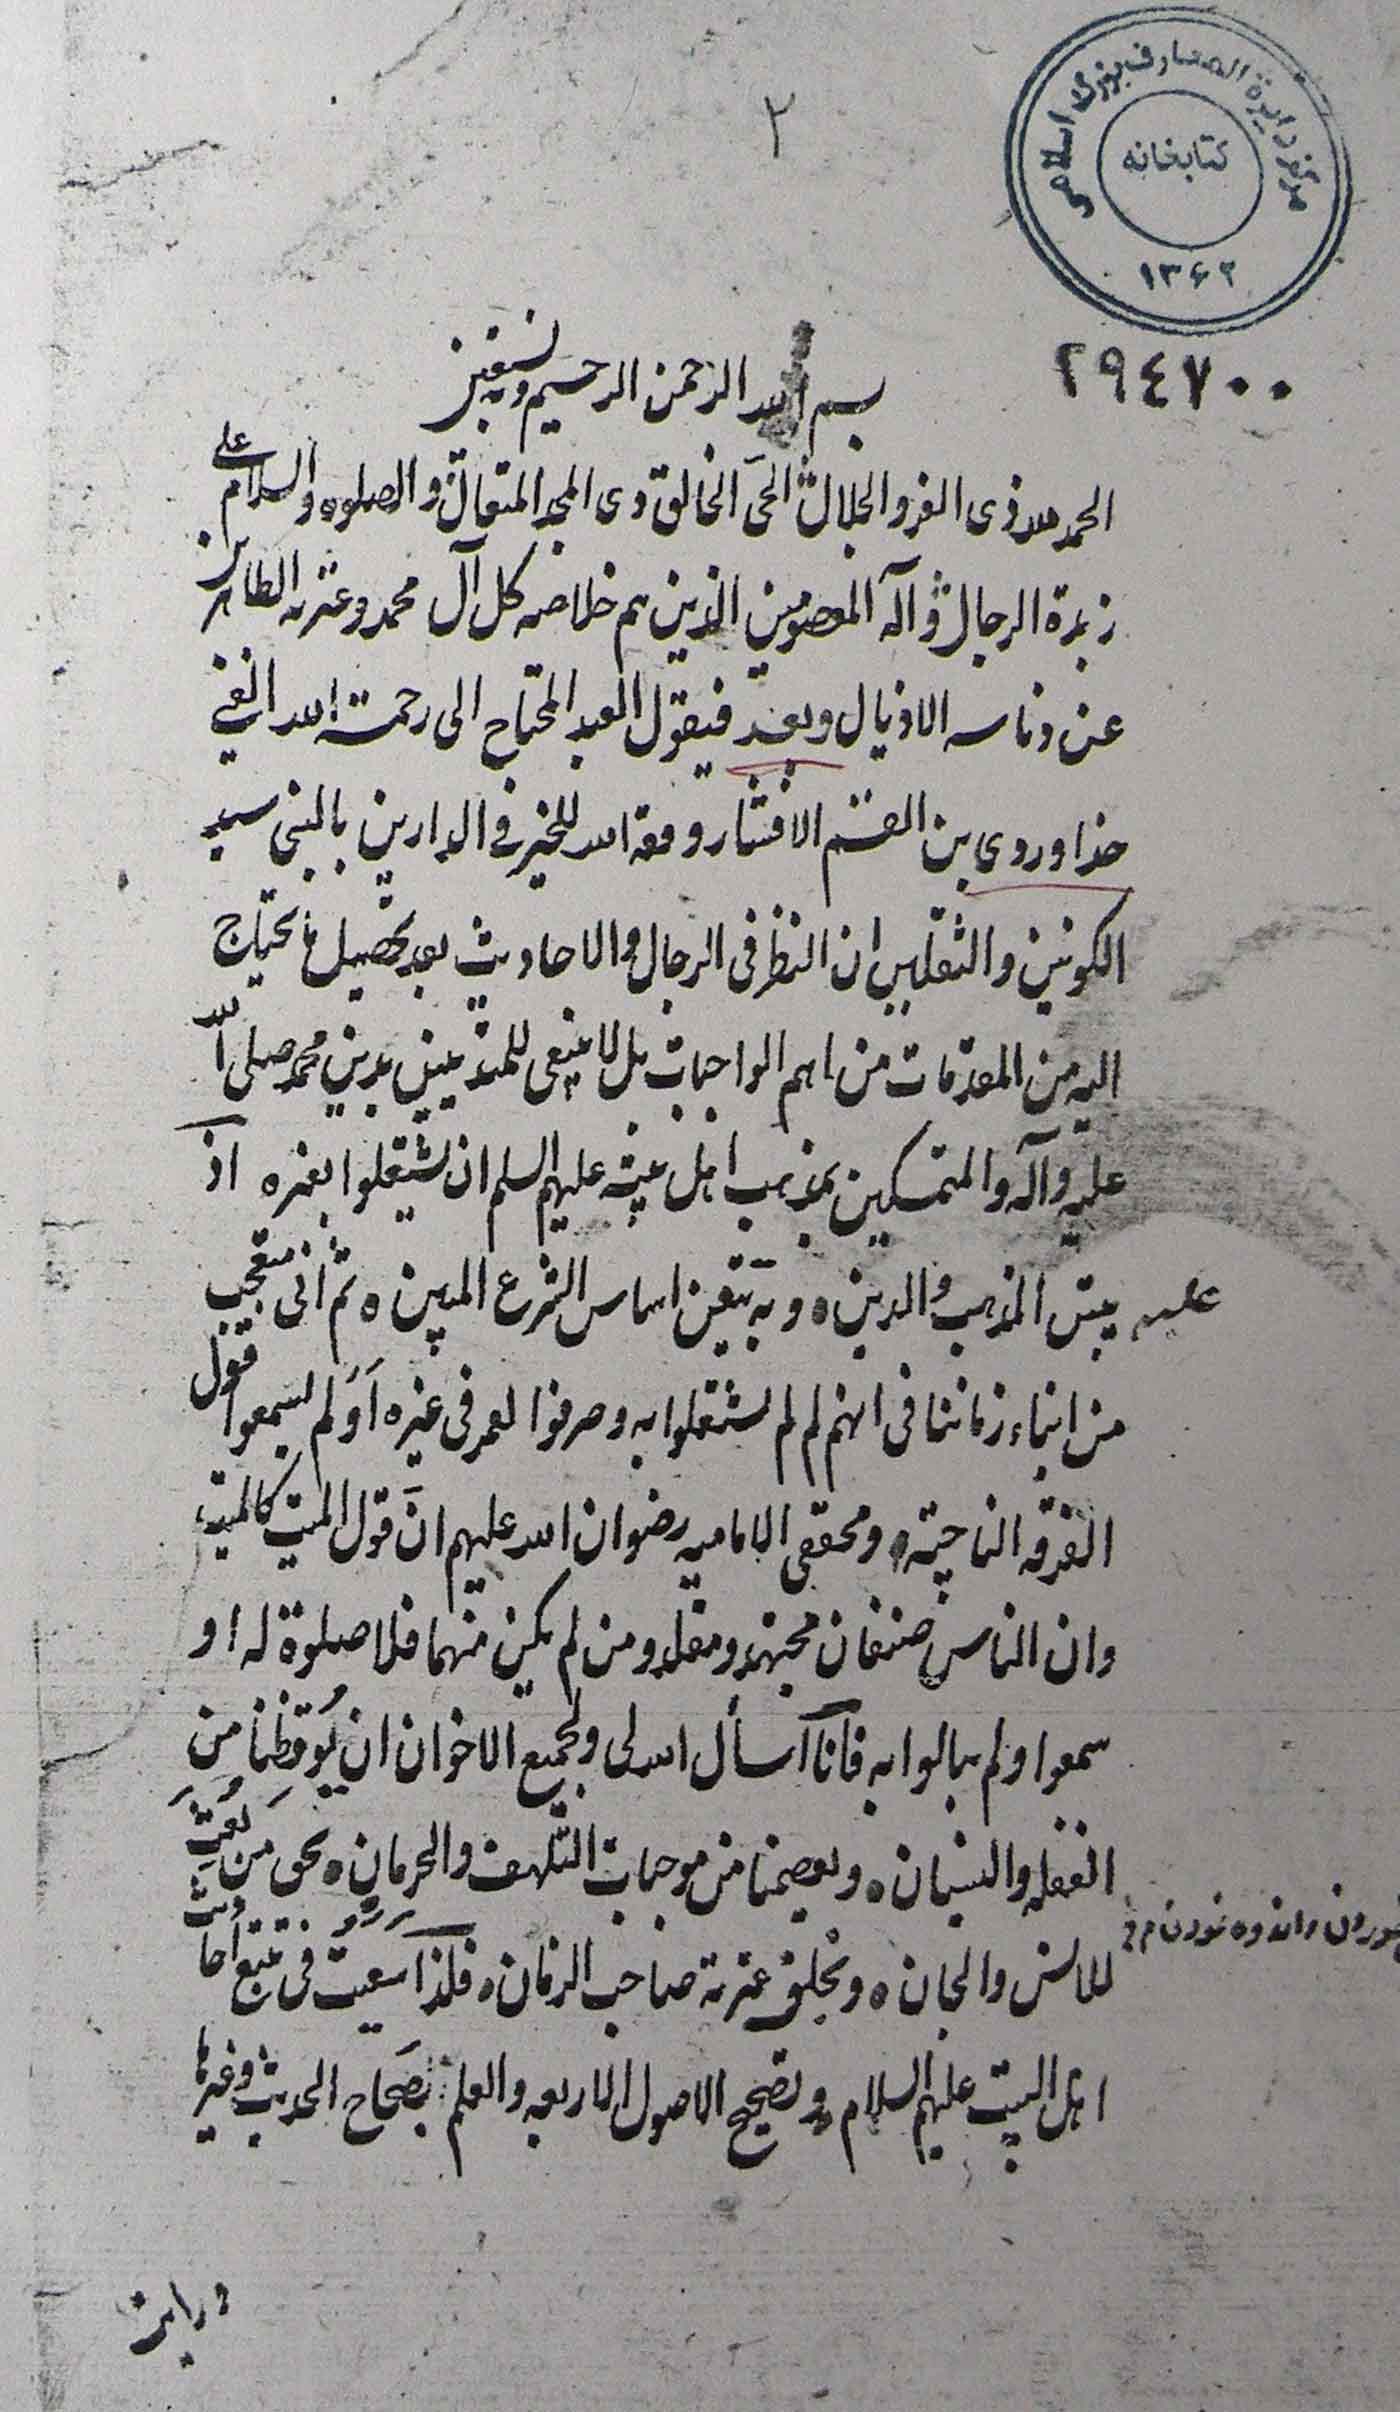 ٢
مرکز دایرة المعارف بزرگ اسلامی
کتابخانه
١٣۶٢
٢٩٤٧٠٠
بسم الله الرحمن الرحیم وبه نستعین
الحمد لله ذی العز والجلال الحیّ الخالق ذی المجد المتعال والصلوه والسلام علی
زبدة الرجال وآله المعصومین الذین هم خلاصه کل آل محمد وعترته الطاهرین
عن دناسه الاذیال وبعد فیقول العبد المحتاج الی رحمة الله الغنی
خداوردی بن القسم الافشار وفقه الله للخیر فی الدارین بالنبی سید
الکونین والثقلین ان النظر فی الرجال والاحادیث بعد تحصیل ما یحتاج
الیه من المقدمات من اهم الواجبات بل لا ینبغی للمتدینین بدین محمد صلی الله
علیه وآله والمتمسکین بمذهب اهل بیته علیهم السلم ان یشتغلوا بغیره اذ
علیه یبتنی المذهب والدین ٥ وبه یتقن اساس الشرع المبین ٥ ثم انی متعجب
من ابناء زماننا فی انهم لم لم یشتغلوا به وصرفوا العمر فی غیره اَوَلم یسمعوا قول
الفرقه الناجیة ٥ ومحققی الامامیه رضوان الله علیهم انّ قول المیت کالمیت
وان الناس صنفان مجتهد ومقلد ومن لم یکن منهما فلا صلوة له او
سمعوا ولم یبالوا به فانا اسأل الله لی ولجمیع الاخوان ان یُوقظنا من
الغفله والنسیان ٥ ویعصمنا من موجبات التلهف والحرمان ٥ بحق من بُعِثَ
للانس والجان ٥ وبخلف عترته صاحب الزمان ٥ فلذا سَعَیْتُ فی تتبع احادیث
خوردن واندوه نمودن م ق
اهل البیت علیهم السلام وتصحیح الاصول الاربعه والعلم بصَحاح الحدیث وغیرها
ورایت